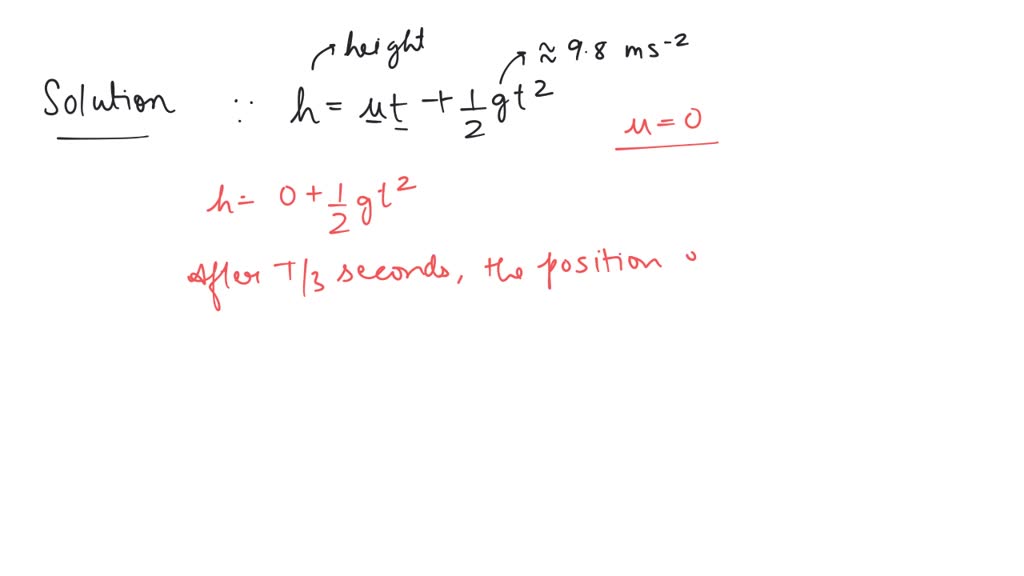 height
≈ 9.8 ms⁻²
Solution ∵ h = ut + 1/2 gt²
u = 0
h = 0 + 1/2 gt²
After T/3 seconds, the position